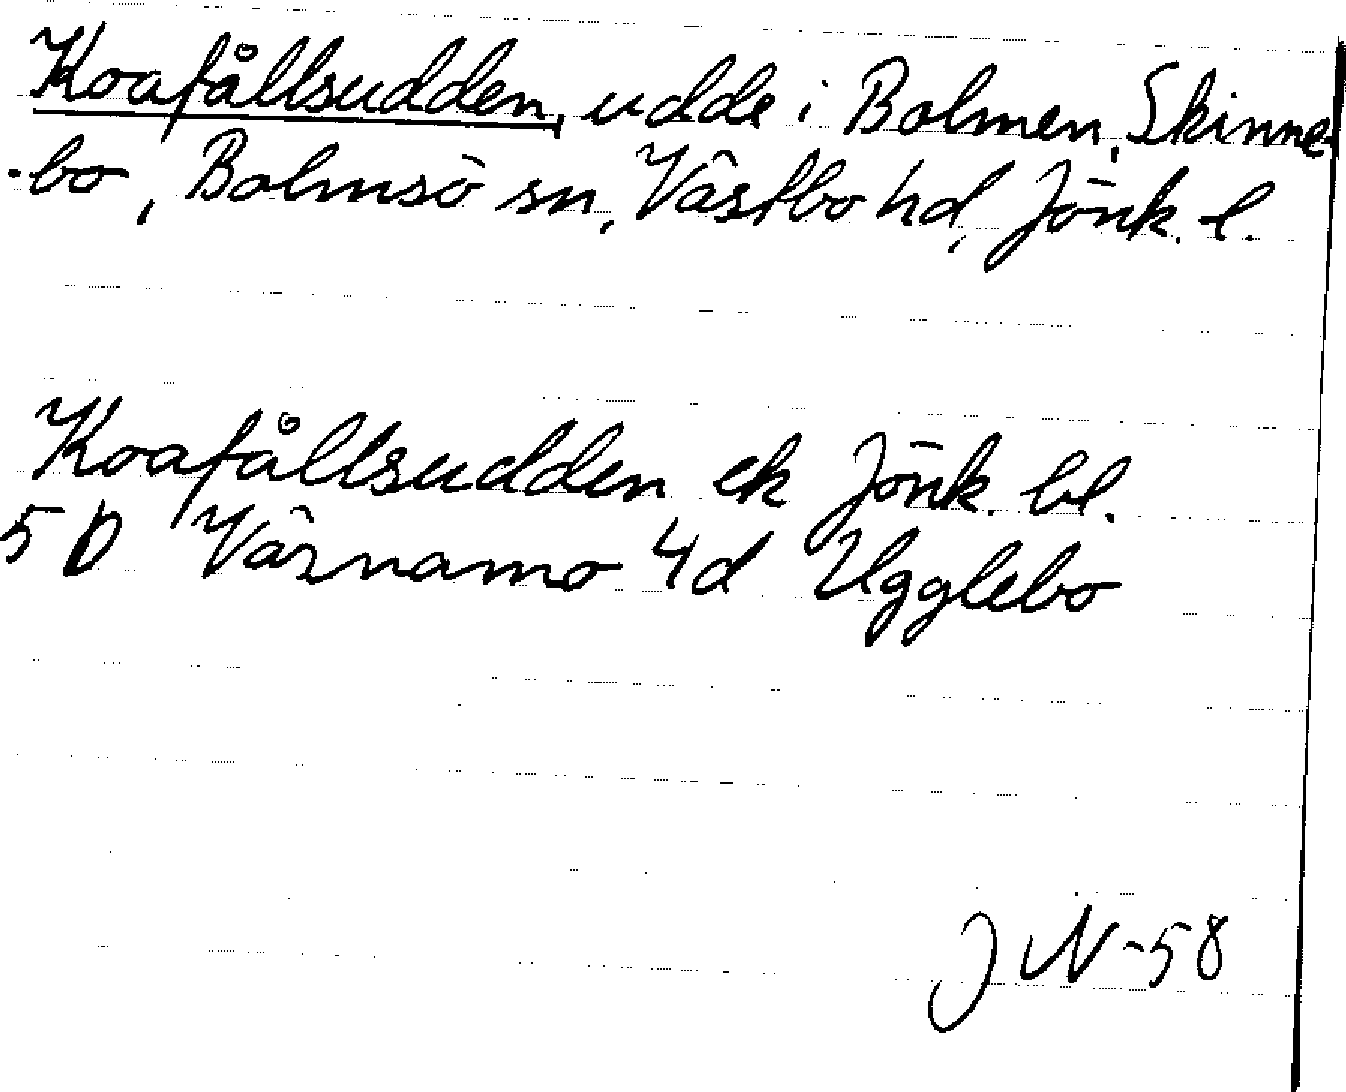 Koafållsudden, udde i Bolmen, Skinne-
bo, Bolmsö sn, Västbo hd, Jönk. l.
Koafållsudden ek Jönk. bl.
5 D Värnamo 4d Ugglebo
J N -58